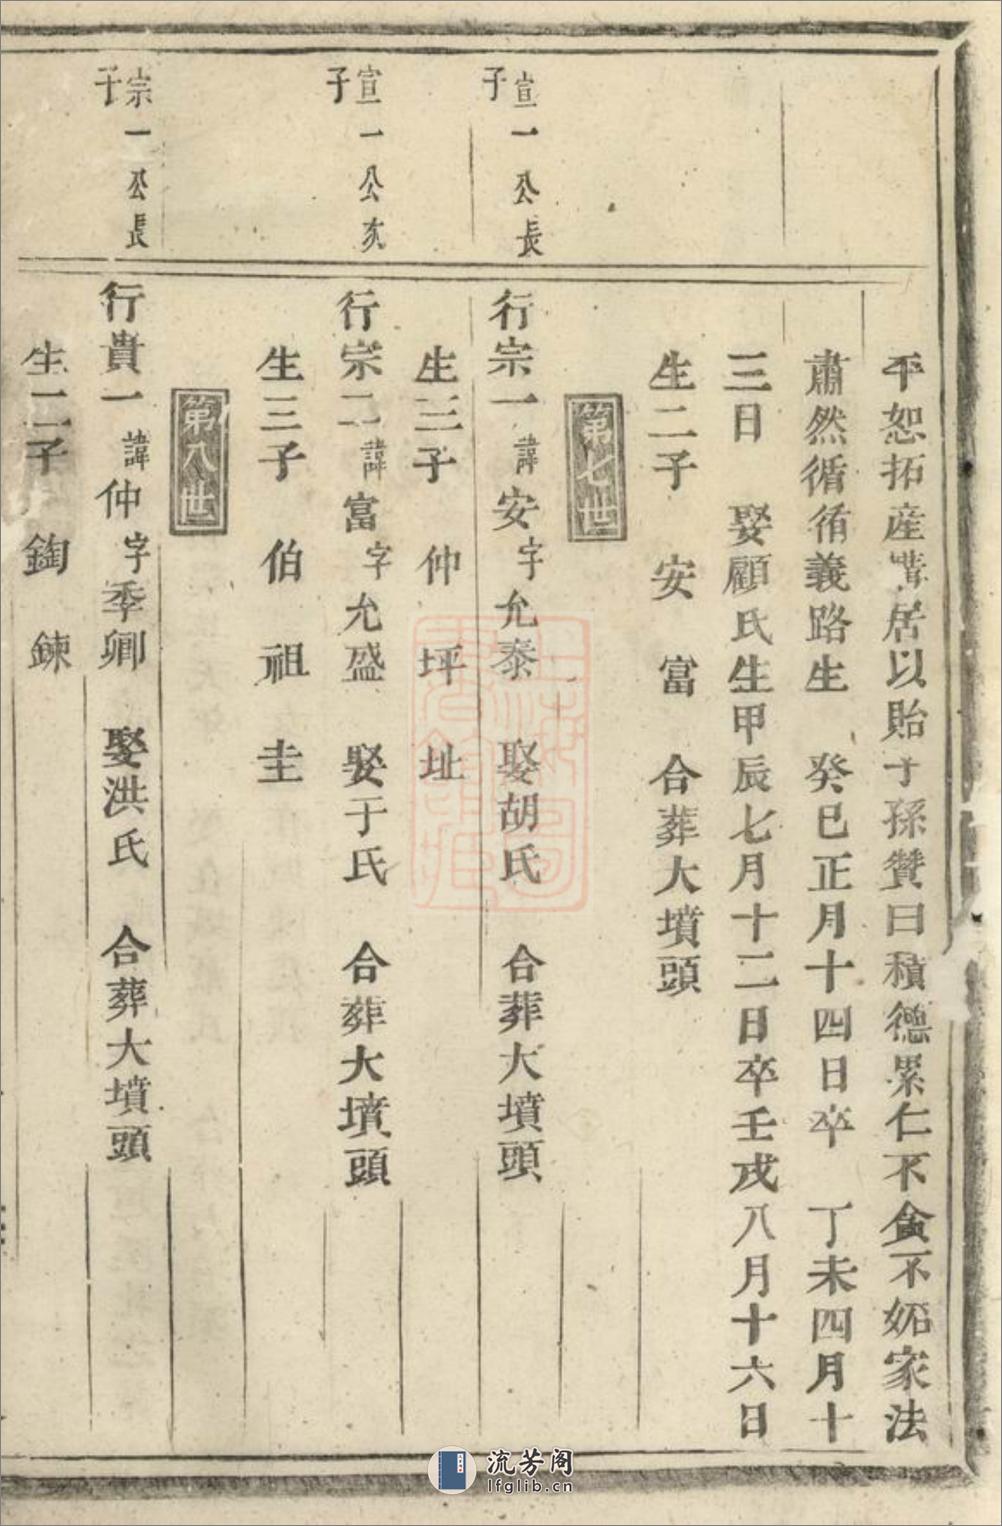 平恕拓産業居以貽子孫贊曰積德累仁不貪不妬家法
肅然循循義路生 癸巳正月十四日卒 丁未四月十
三日 娶顧氏生甲辰七月十二日卒壬戌八月十六日
生二子 安 富 合葬大墳頭
第七世
宣一公長
子
行宗一諱安字允泰 娶胡氏 合葬大墳頭
生三子 仲 坪 址
宣一公次
子
行宗二諱富字允盛 娶于氏 合葬大墳頭
生三子 伯 祖 圭
第八世
宗一公長
子
行貴一諱仲字季卿 娶洪氏 合葬大墳頭
生二子 鋾 鍊
流芳阁
lfglib.cn